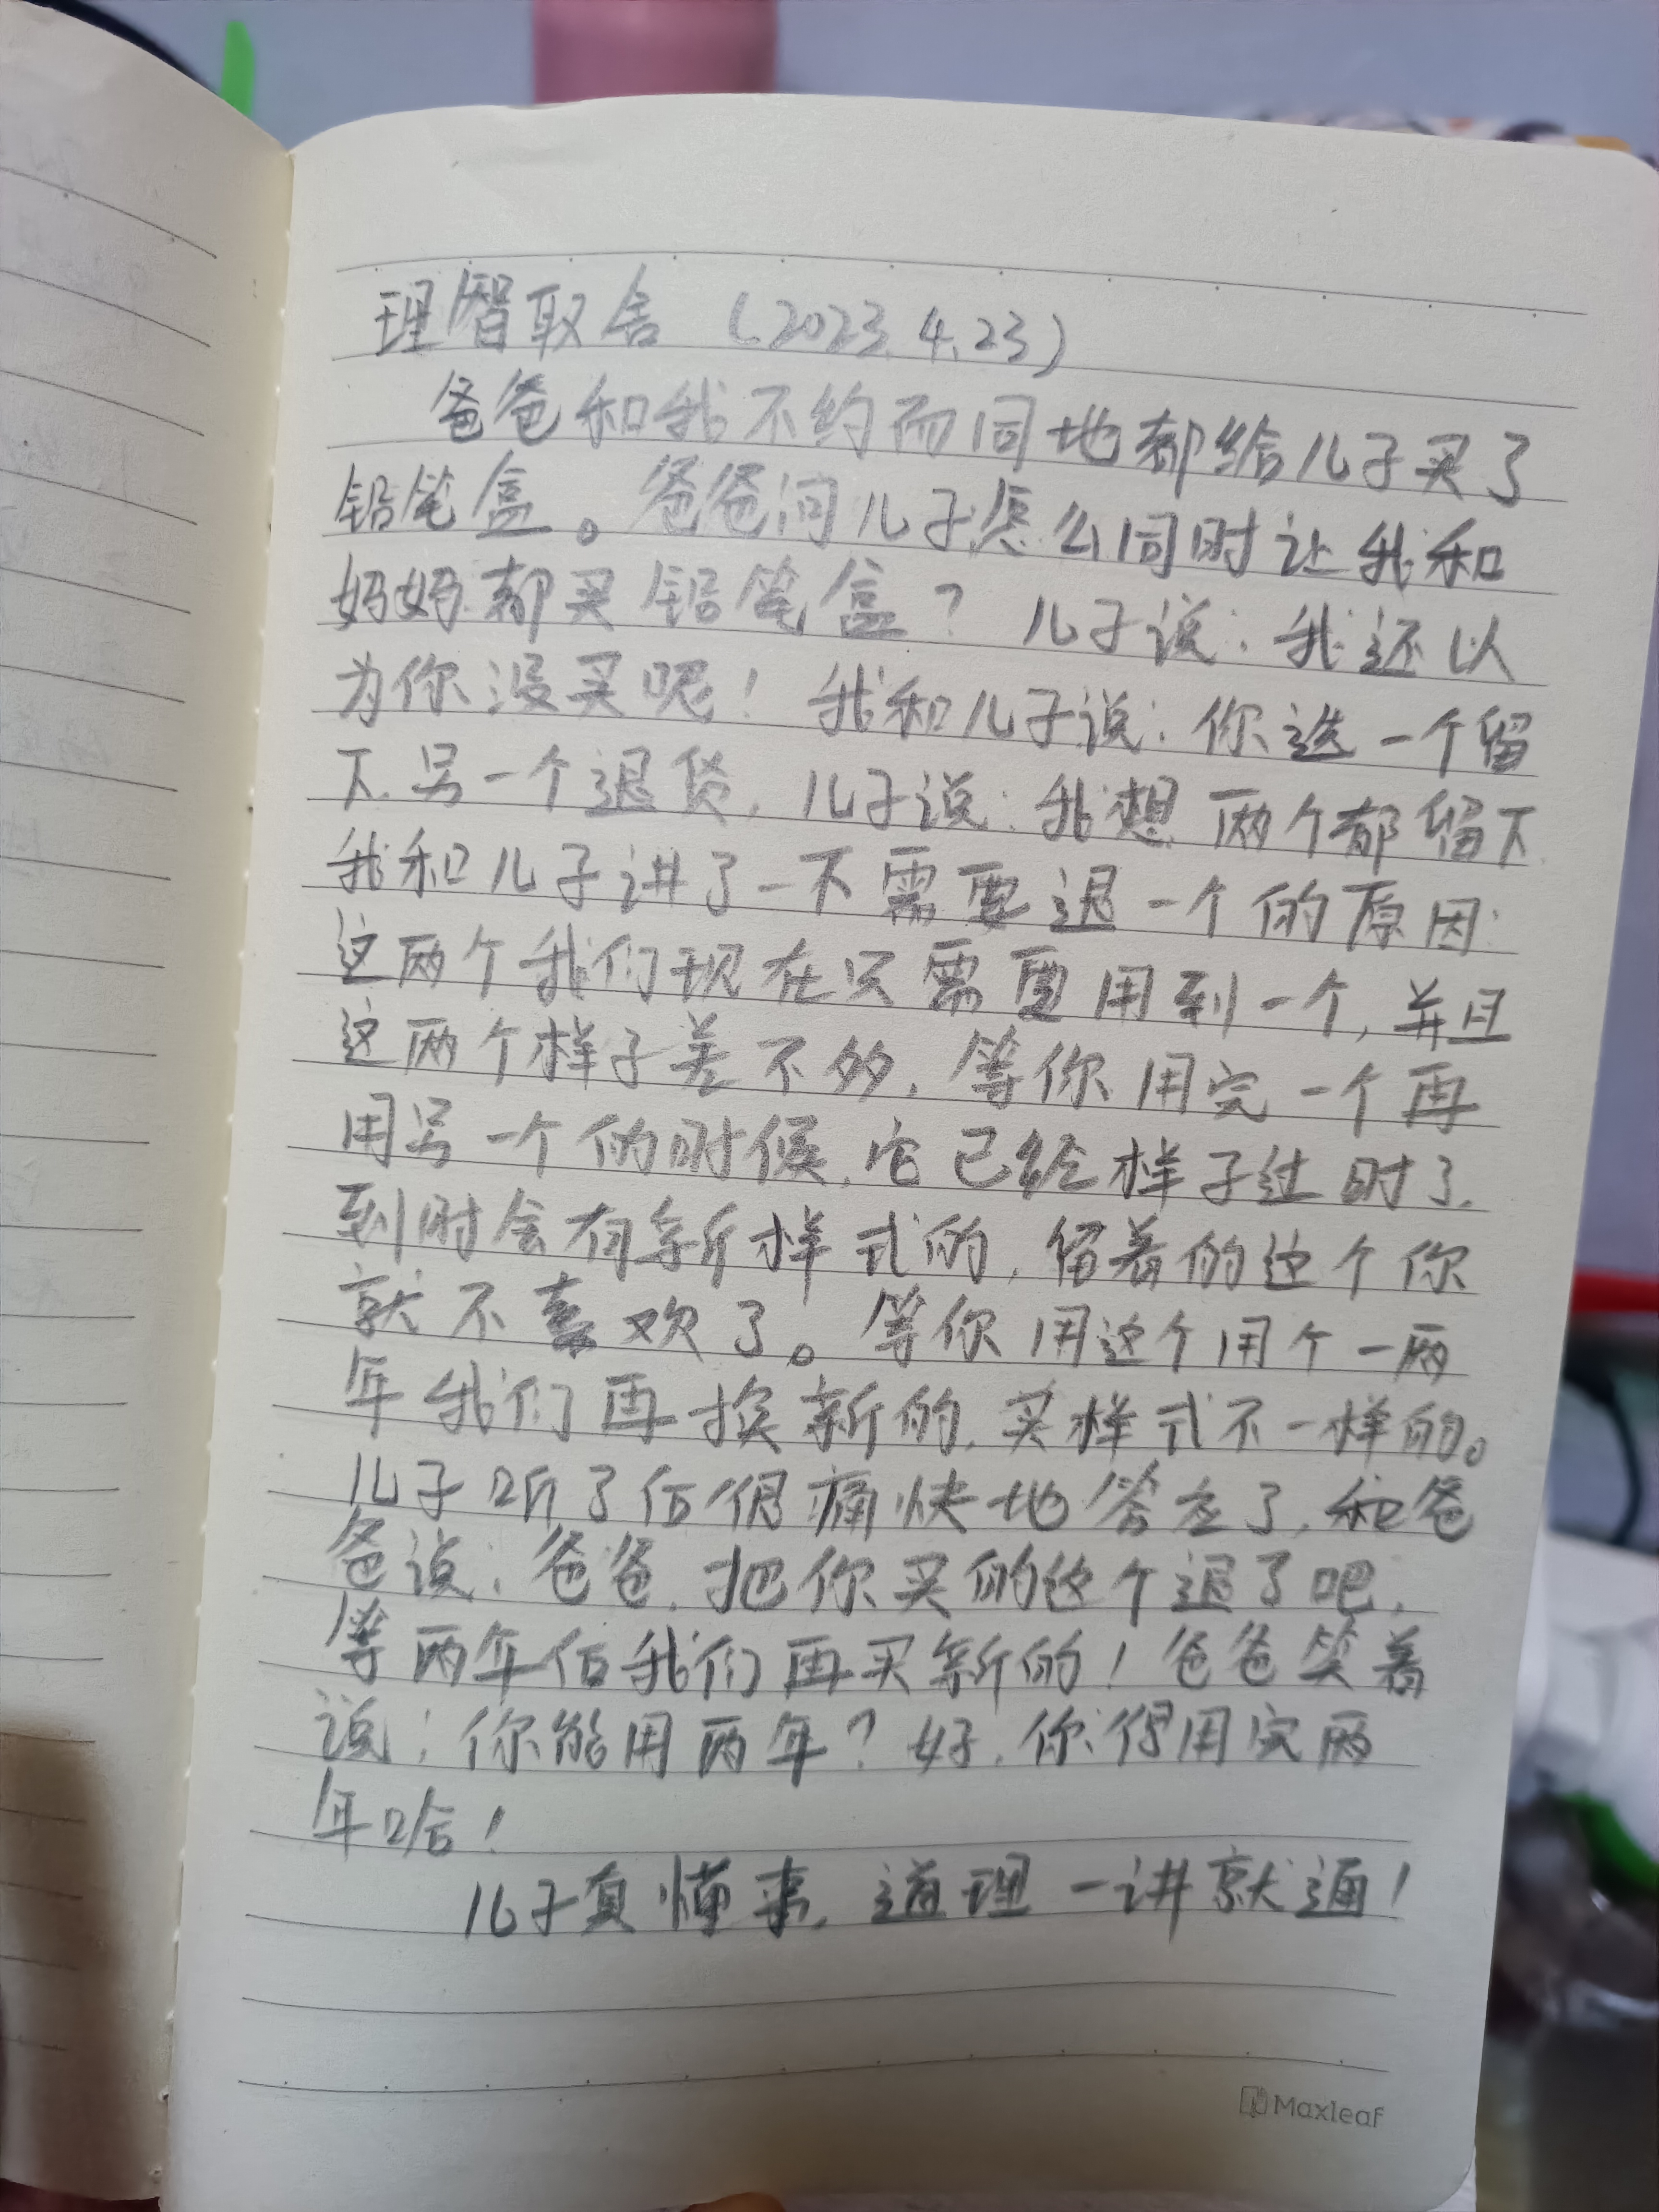 理智取舍（2023.4.23）
爸爸和我不约而同地都给儿子买了
铅笔盒。爸爸问儿子怎么同时让我和
妈妈都买铅笔盒？儿子说：我还以
为你没买呢！我和儿子说：你选一个留
下.另一个退货，儿子说：我想两个都留下.
我和儿子讲了一下需要退一个的原因：
这两个我们现在只需要用到一个，并且
这两个样子差不多，等你用完一个再
用另一个的时候，它已经样子过时了.
到时会有新样式的，留着的这个你
就不喜欢了。等你用这个用个一两
年我们再换新的，买样式不一样的。
儿子听了后很痛快地答应了，和爸
爸说：爸爸，把你买的这个退了吧，
等两年后我们再买新的！爸爸笑着
说：你能用两年？好，你得用完两
年哈！
儿子真懂事，道理一讲就通！
Maxleaf